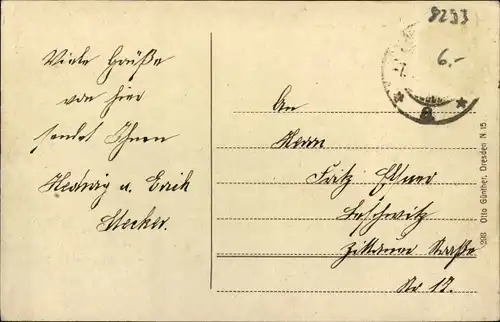 8233
6.-
Viele Grüße
von hier
sendet Ihnen
Hedwig u. Erich
Stecker.
An
Herrn
Fritz
Loschwitz
Zittauer Straße
Nr 17.
298 Otto Günther, Dresden N. 15